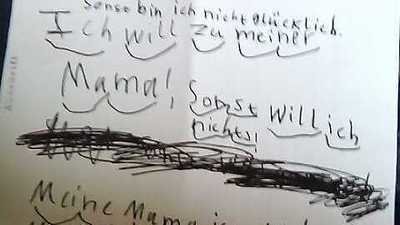 sonst bin ich nicht glücklich.
Ich will zu meiner
Mama! Sonst will ich
nichts!
Meine Mama